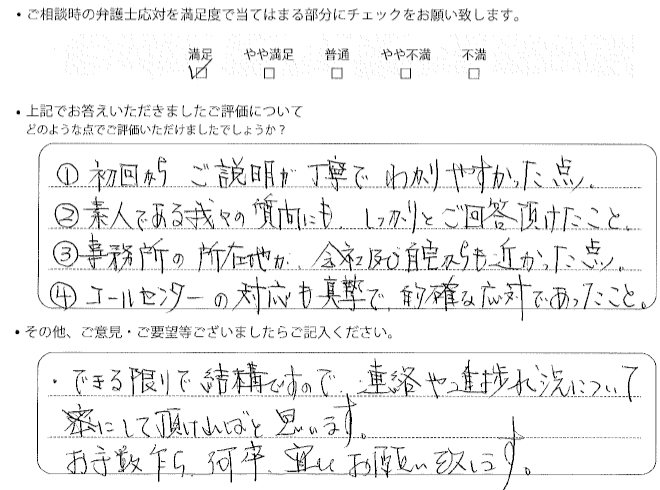 ・ご相談時の弁護士応対を満足度で当てはまる部分にチェックをお願い致します。
満足 やや満足 普通 やや不満 不満
・上記でお答えいただきましたご評価について
どのような点でご評価いただけましたでしょうか？
①初回から ご説明が 丁寧で わかりやすかった点。
②素人である我々の質問にも、しっかりとご回答頂けたこと。
③事務所の所在地が、会社及び自宅からも近かった点。
④コールセンターの対応も真摯で、的確な応対であったこと。
・その他、ご意見・ご要望等ございましたらご記入ください。
・できる限りで結構ですので、連絡や進捗状況について
密にして頂ければと思います。
お手数乍ら、何卒、宜しくお願い致します。